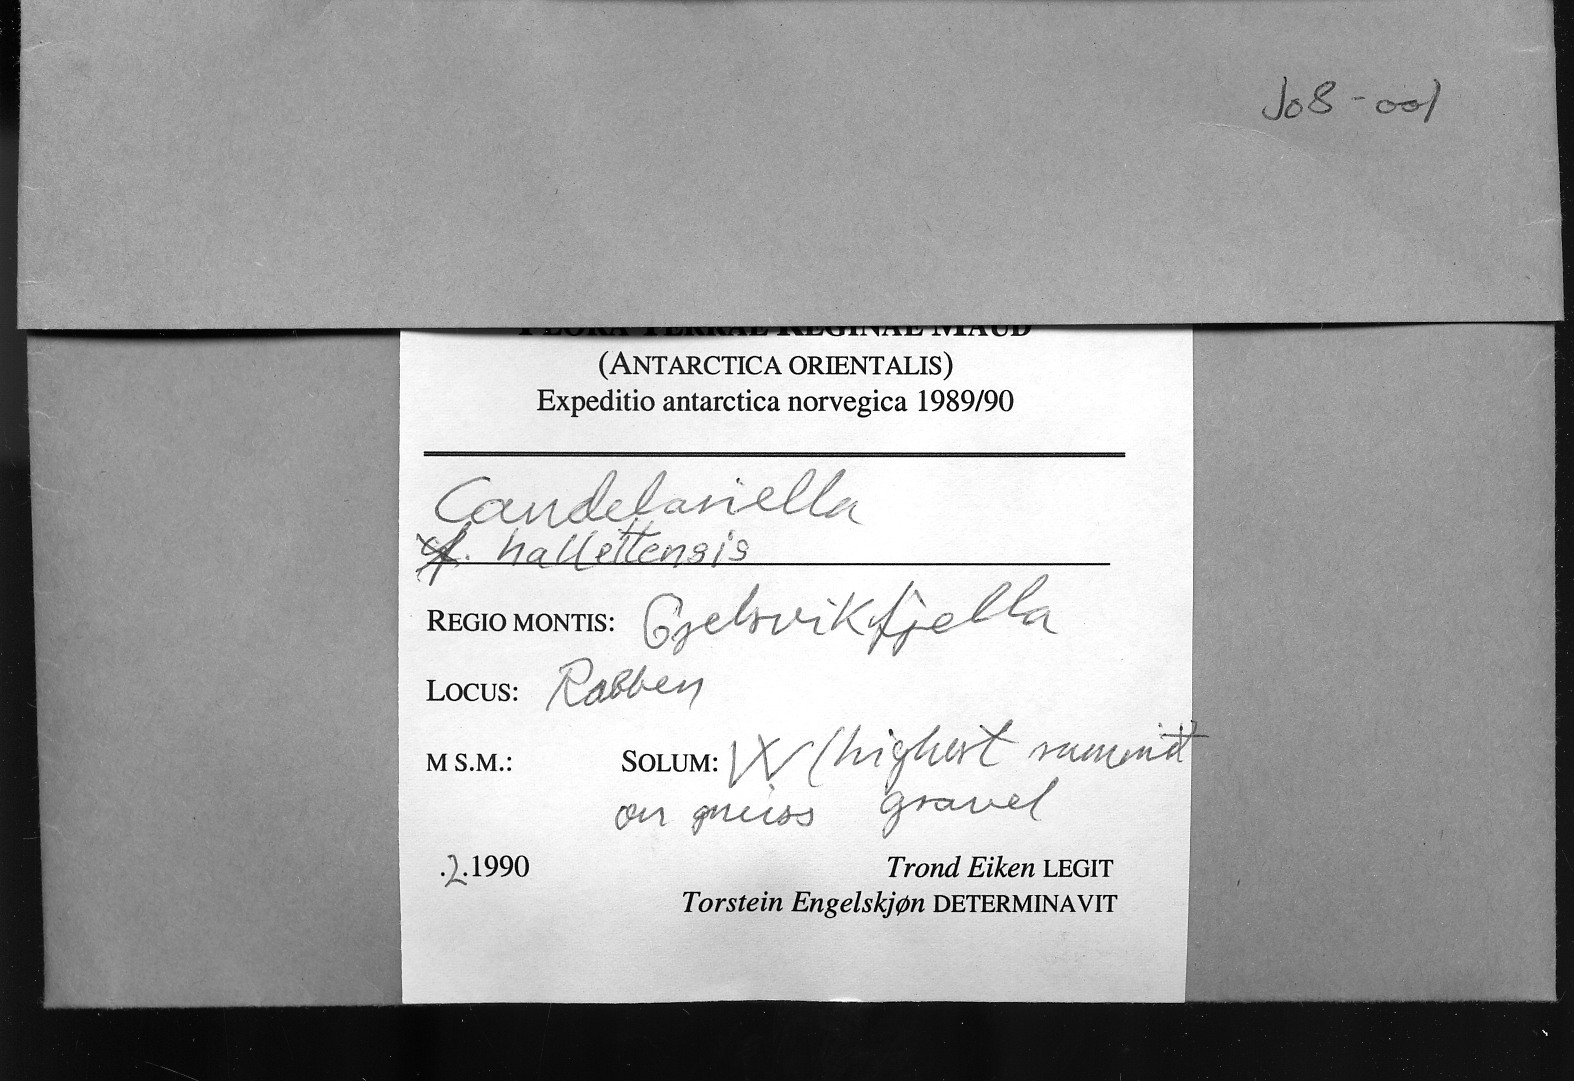 Jo8-001
FLORA TERRAE REGINAE MAUD
(ANTARCTICA ORIENTALIS)
Expeditio antarctica norvegica 1989/90
Candelariella
cf. hallettensis
REGIO MONTIS: Gjelsvikfjella
LOCUS: Rabben
M S.M.: SOLUM: W (highest summit
on gneiss gravel
.2.1990 Trond Eiken LEGIT
Torstein Engelskjøn DETERMINAVIT